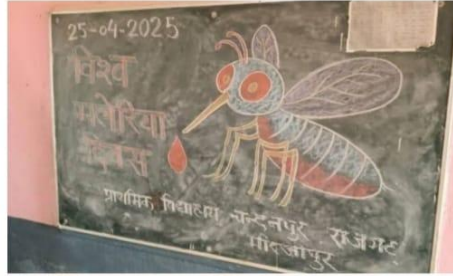 25-04-2025
विश्व
मलेरिया
दिवस
प्राथमिक विद्यालय चन्दनपुर राजगढ़
मीरजापुर